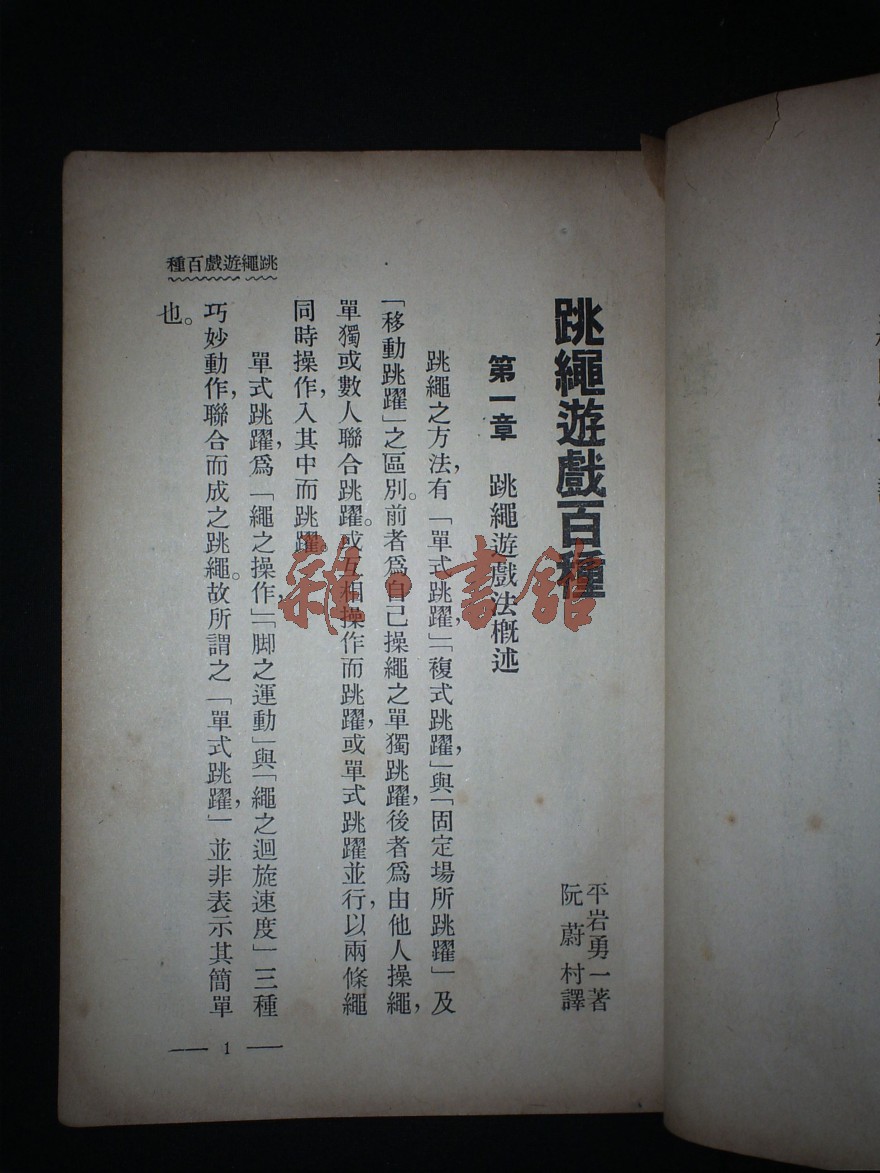 跳繩遊戲百種
平岩勇一著
阮蔚村譯
第一章 跳繩遊戲法概述
跳繩之方法，有「單式跳躍，」「複式跳躍，」與「固定場所跳躍」及
「移動跳躍」之區別。前者爲自己操繩之單獨跳躍，後者爲由他人操繩，
單獨或數人聯合跳躍。或互相操作而跳躍，或單式跳躍並行，以兩條繩
同時操作，入其中而跳躍。
單式跳躍，爲「繩之操作，」「脚之運動」與「繩之迴旋速度」三種
巧妙動作，聯合而成之跳繩。故所謂之「單式跳躍，」並非表示其簡單
也。
跳繩遊戲百種
1
雜·書館